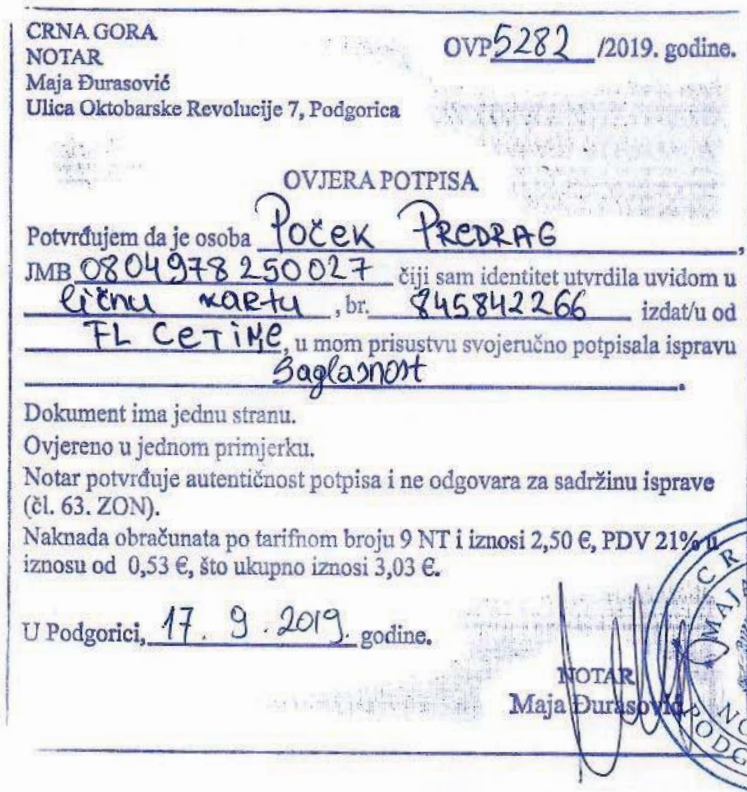 CRNA GORA
NOTAR
Maja Đurasović
Ulica Oktobarske Revolucije 7, Podgorica
OVP 5282 /2019. godine.
OVJERA POTPISA
Potvrđujem da je osoba Poček PREDRAG,
JMB 0804978250027 čiji sam identitet utvrdila uvidom u
ličnu kartu, br. 845842266 izdat/u od
FL CETINE, u mom prisustvu svojeručno potpisala ispravu
Saglasnost.
Dokument ima jednu stranu.
Ovjereno u jednom primjerku.
Notar potvrđuje autentičnost potpisa i ne odgovara za sadržinu isprave
(čl. 63. ZON).
Naknada obračunata po tarifnom broju 9 NT i iznosi 2,50 €, PDV 21% u
iznosu od 0,53 €, što ukupno iznosi 3,03 €.
U Podgorici, 17. 9. 2019. godine.
NOTAR
Maja Đurasović